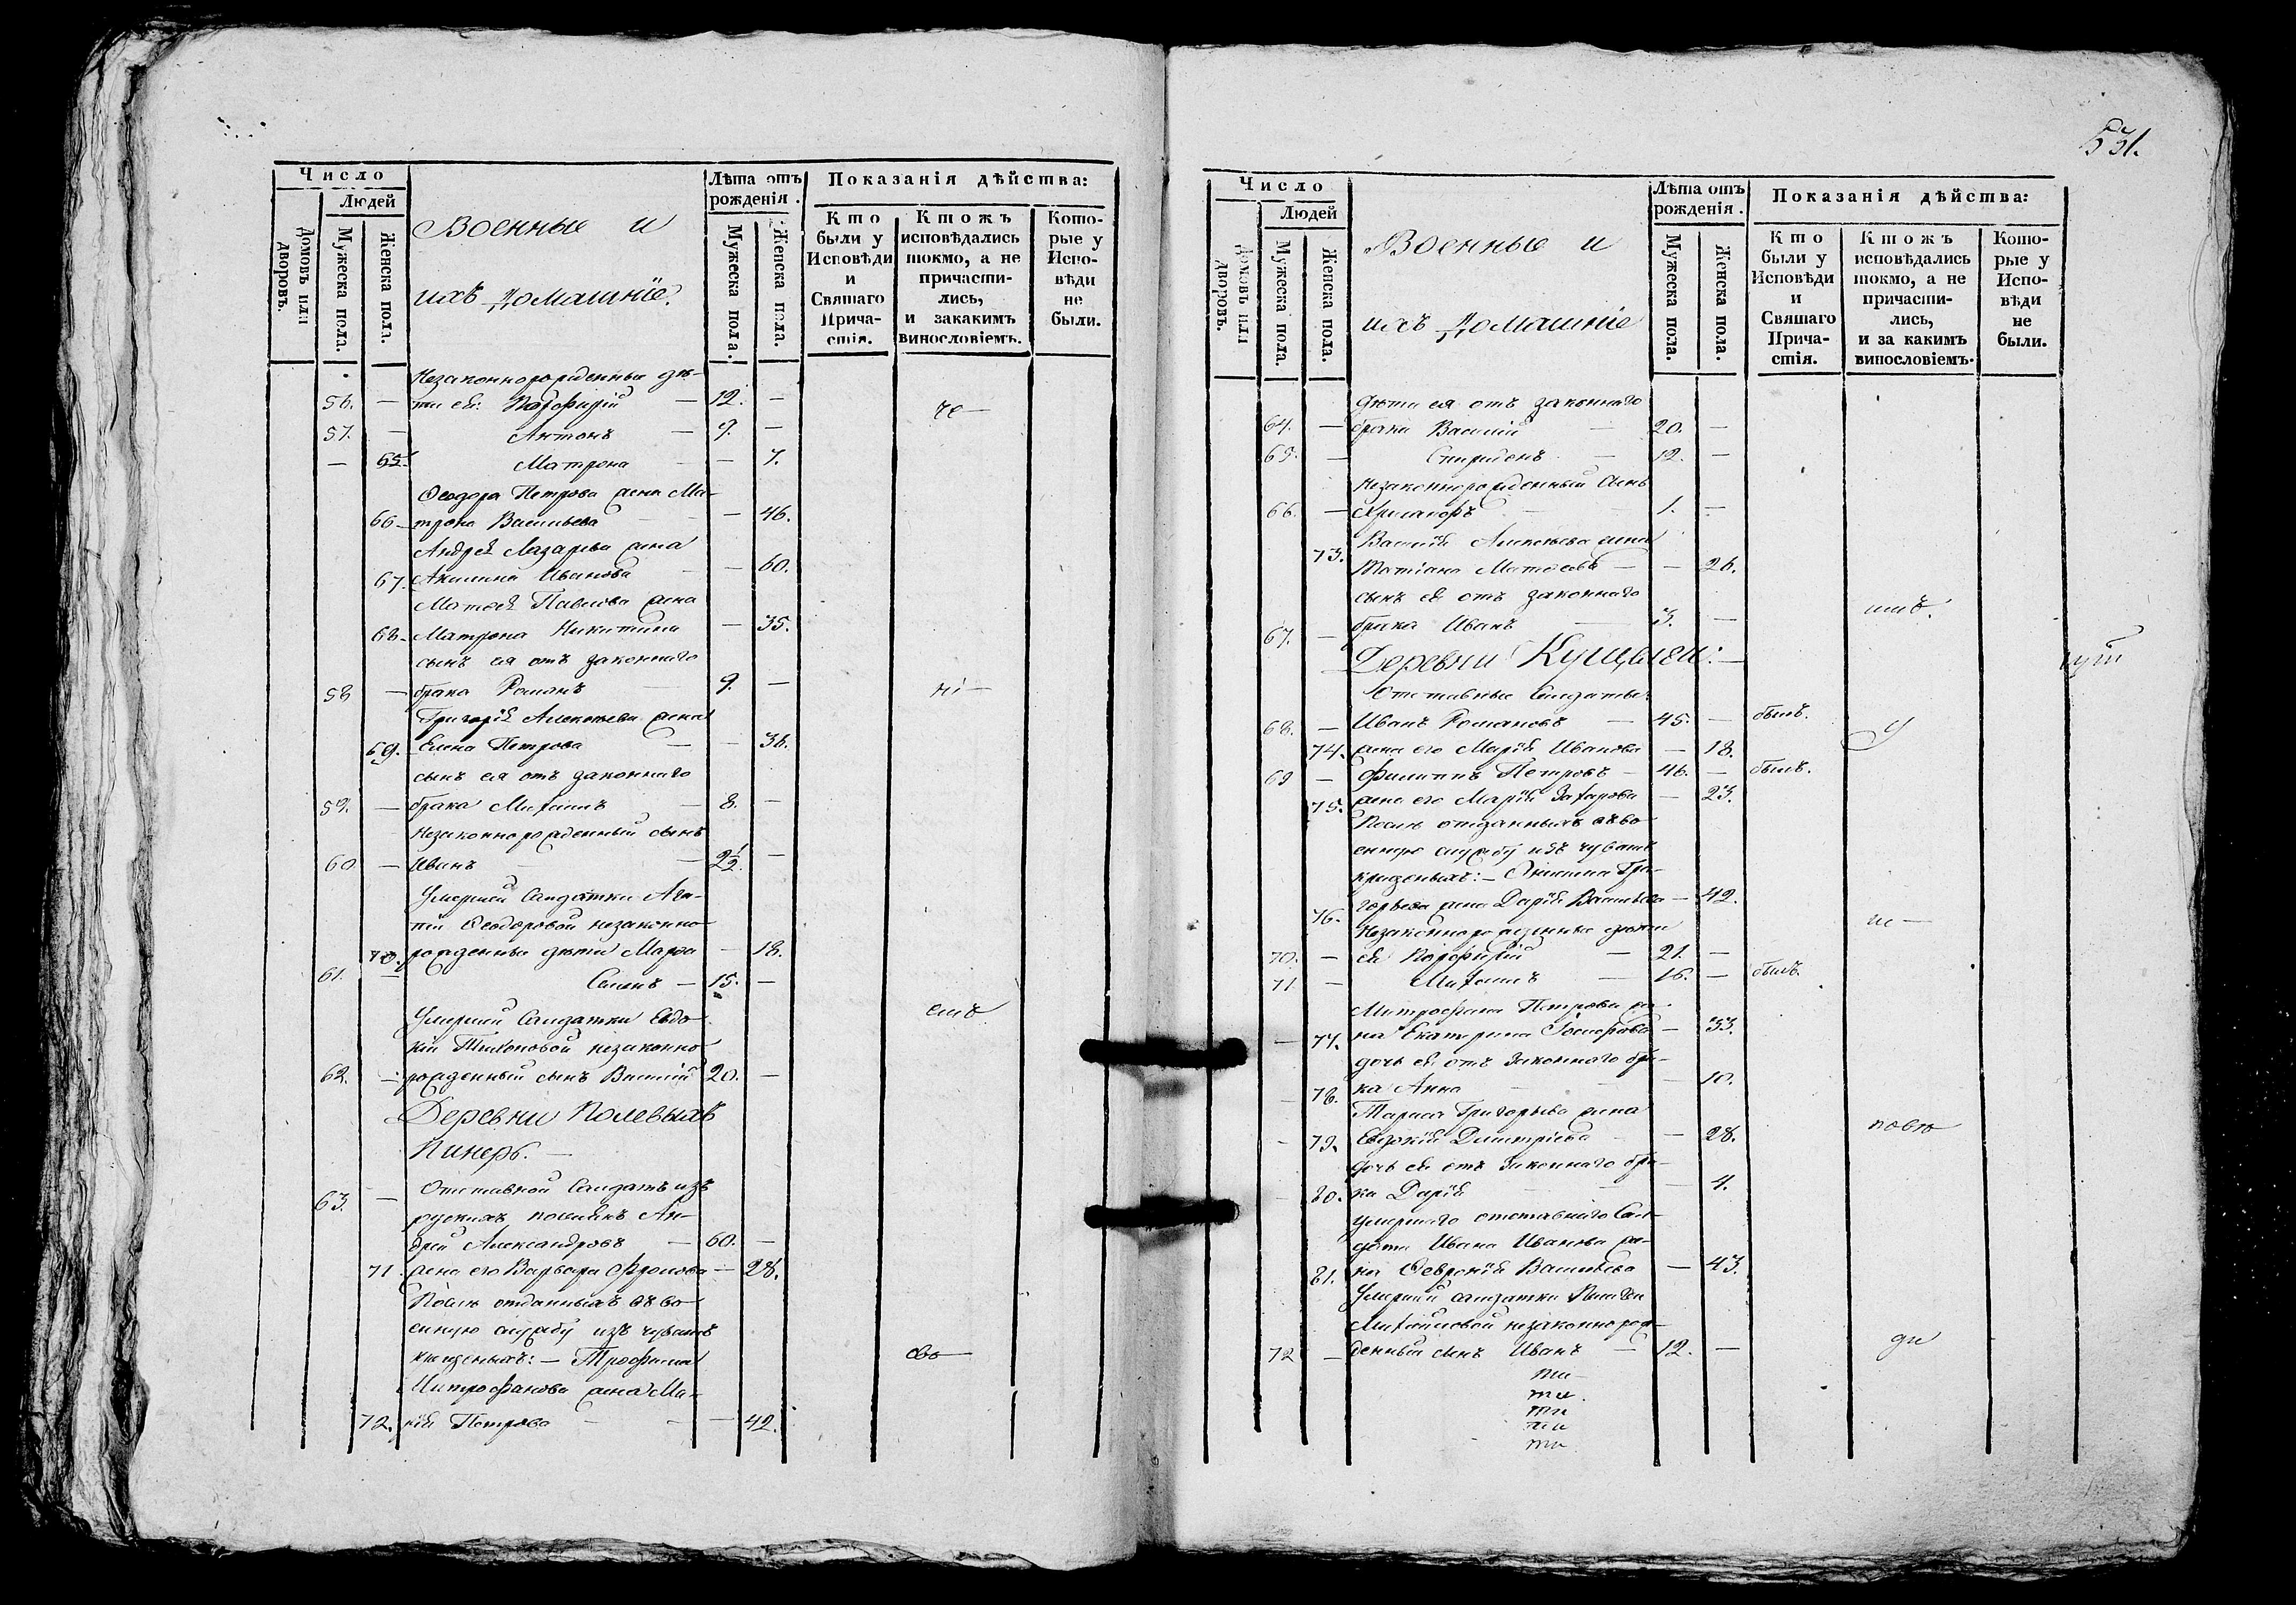 Число
Людей
Домовъ или дворовъ.
Мужеска пола.
Женска пола.
Военные и
ихъ домашніе.
Лѣта отъ рожденія.
Мужеска пола.
Женска пола.
Показанія дѣйства:
Кто были у Исповѣди и Святаго Прича-стія.
Ктожъ исповѣдались токмо, а не причасти-лись, и закакимъ винословіемъ.
Кото-рые у Испо-вѣди не были.
Незаконнорожденные дѣ-
56. — ти ея: Порфирій — 12. —
57. — Антонъ — 9. —
— 65. Матрона — — 7.
Ѳеодора Петрова жена Ма-
66. трона Васильева — — 46.
Андрея Лазарева жена
67. Акилина Иванова — — 60.
Матвея Павлова жена
68. Матрона Никитина — 35.
сынъ ея отъ законнаго
58 — брака Романъ — 9. —
Григорія Алексеева жена
69. Елена Петрова — — 36.
сынъ ея отъ законнаго
59. — брака Михаилъ — 8. —
Незаконнорожденный сынъ
60 — Иванъ — 2½ —
Умершей Солдатки Ага-
піи Ѳеодоровой незаконно
70. рожденные дѣти Марѳа — 18.
61. — Семенъ — 15. —
Умершей Солдатки Евдо-
кіи Тихоновой незаконно
62. — рожденный сынъ Василій 20. —
Деревни Полевыхъ
Пинеръ. —
Отставной Солдатъ изъ
63. — рускихъ
дрей Александровъ — 60. —
71. жена его Варвара Фролова — 28.
Послѣ отданныхъ въ во-
енную службу изъ чувашъ
крещеныхъ: — Трофима
Митрофанова жена Ма-
72. рія Петрова — — — 42.
531.
Число
Людей
Домовъ или дворовъ.
Мужеска пола.
Женска пола.
Военные и
ихъ домашніе
Лѣта отъ рожденія.
Мужеска пола.
Женска пола.
Показанія дѣйства:
Кто были у Исповѣди и Святаго Прича-стія.
Ктожъ исповѣдались токмо, а не причасти-лись, и за какимъ винословіемъ.
Кото-рые у Испо-вѣди не были.
дѣти ея отъ законнаго
64. — брака Василій — 20. —
65. — Спиридонъ — 12. —
Незаконнорожденный Сынъ
66. — 1. —
Василія Алексеева жена
73. Татіана Матѳеева — — 26.
сынъ ея отъ законнаго
67. — брака Иванъ — 3. —
Деревни Кущелги: —
Отставные Солдаты:
68. — Иванъ Романовъ — 45. — былъ.
74. жена его Марія Иванова — 18.
69 — Филиппъ Петровъ — 46. — былъ.
75. жена его Марія Захарова — 23.
Послѣ отданныхъ въ во
енную службу изъ чувашъ
крещеныхъ: — Никиты Гри-
76. горьева жена Дарія Васильева — 42.
Незаконнорожденные дѣти
70. — ея Порфирій — 21. —
71 — Михаилъ — 16. — былъ.
Митрофана Петрова же-
— 77. на Екатерина Іосифова — 33.
дочь ея отъ Законнаго бра-
— 78. ка Анна — — 10.
Тараса Григорьева жена
— 79. Евдокія Димитріева — — 28.
дочь ея отъ Законнаго бра-
— 80. ка Дарія — — — 4.
умершаго отставнаго Сол-
дата Ивана Иванова же-
81. на Февронія Васильева — 43.
Умершей солдатки
Михайловой незаконнорож-
72 — денный сынъ Иванъ — 12. —
ти
ти
ти
ти
ти